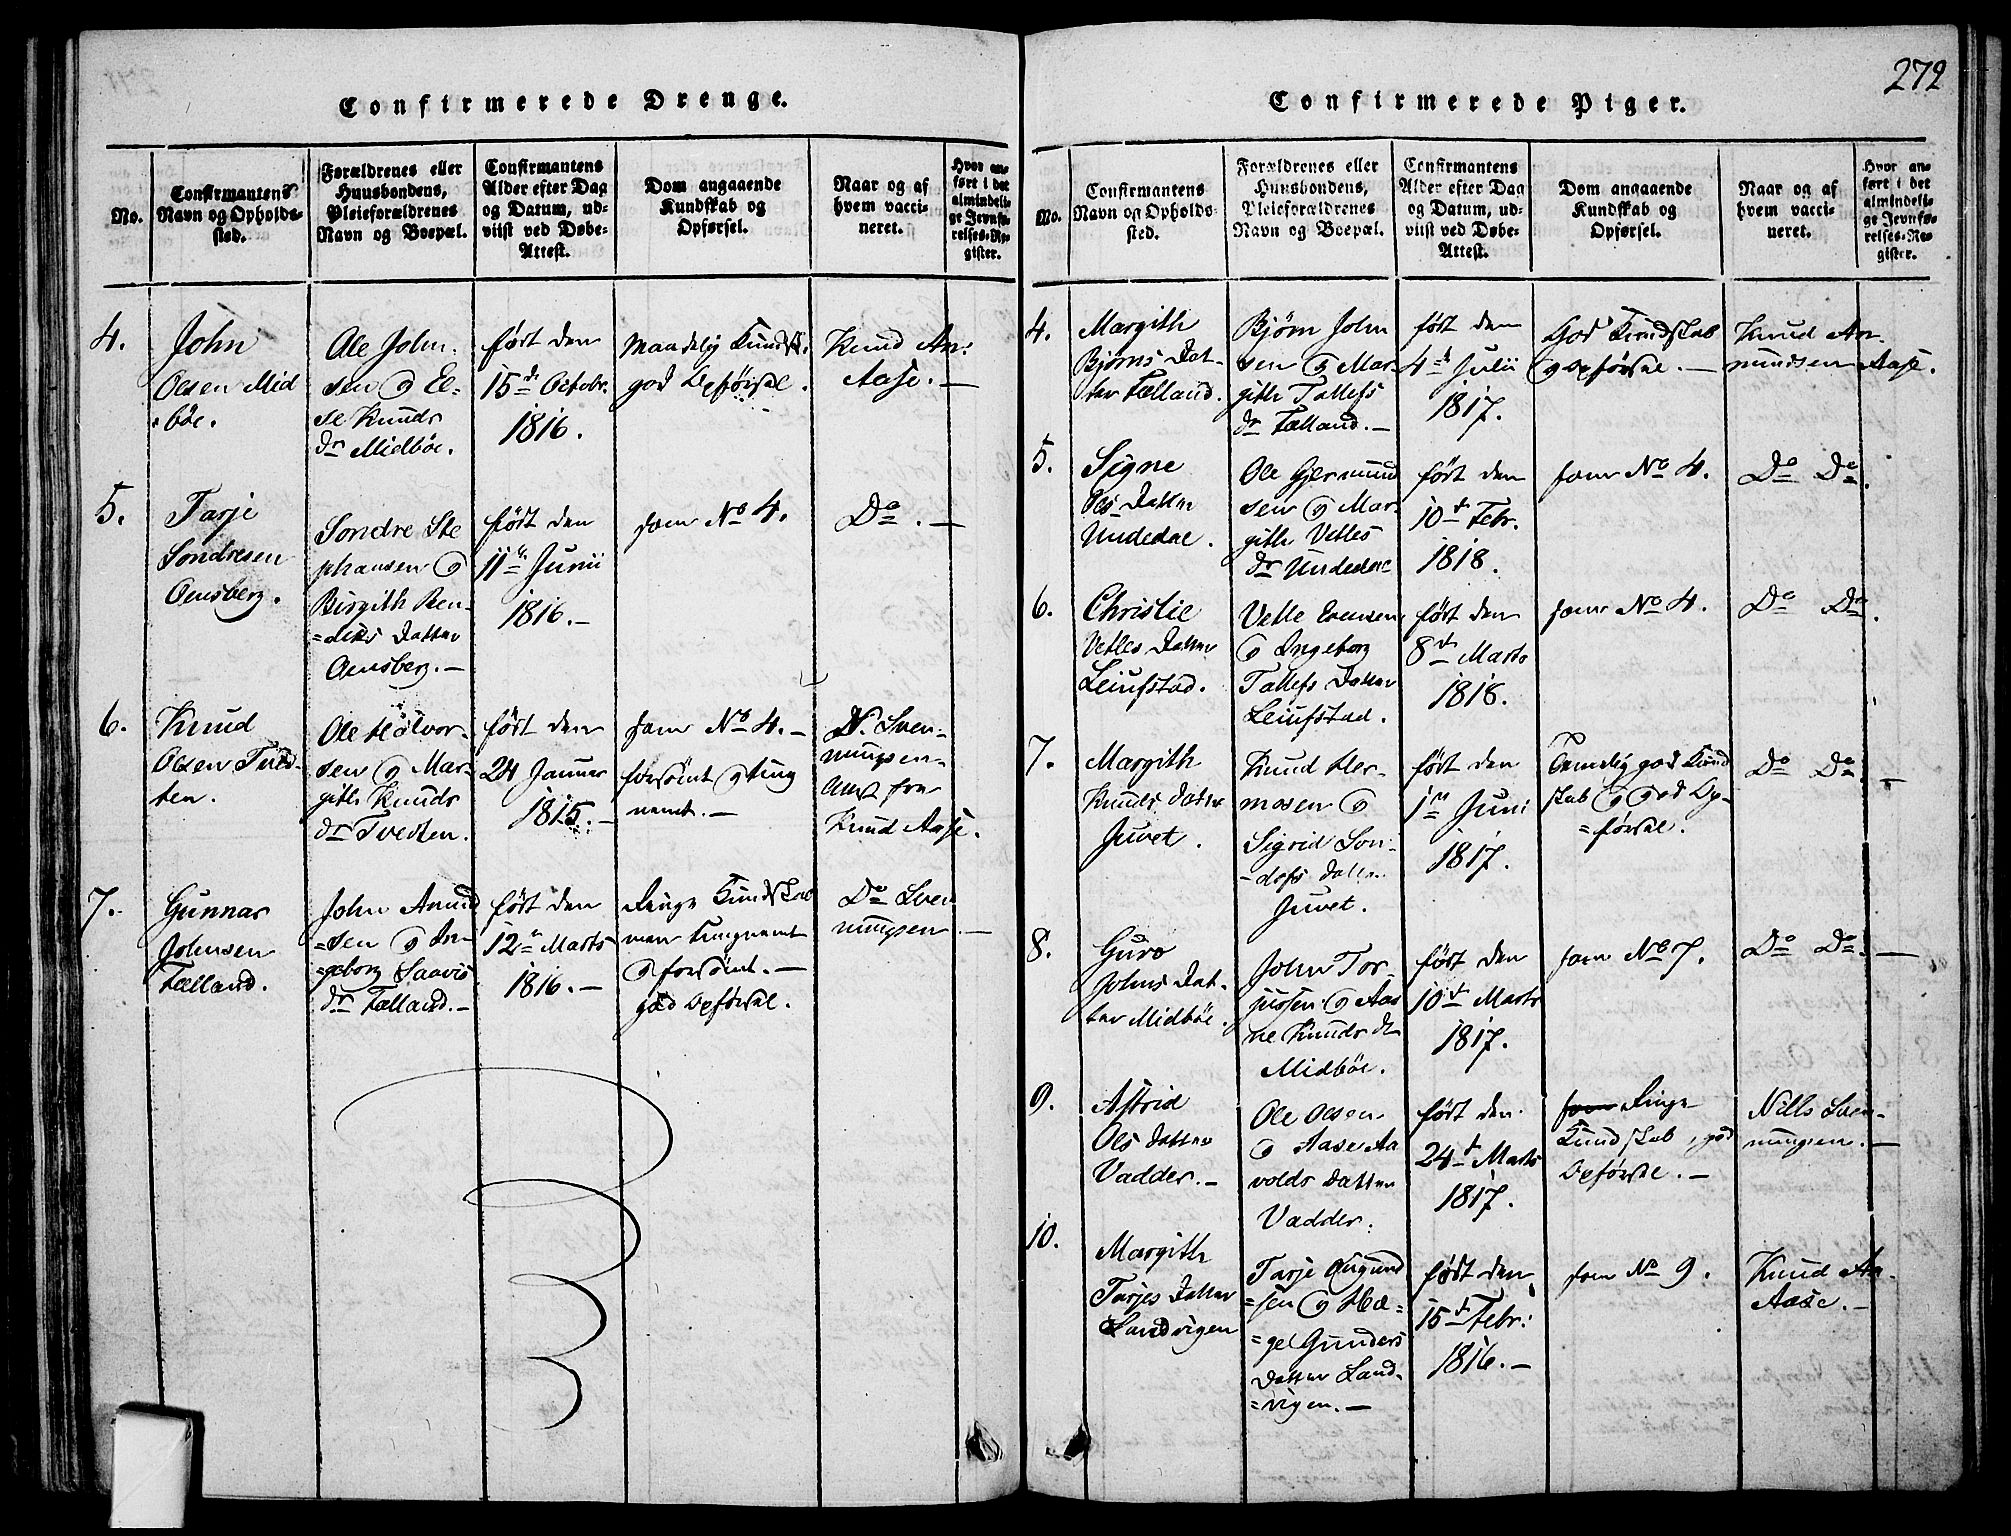 272
Confirmerede Drenge.
No.
Confirmantens
Navn og Opholds-
sted.
Forældrenes eller
Huusbondens,
Pleieforældrenes
Navn og Boepæl.
Confirmantens
Alder efter Dag
og Datum, ud-
viist ved Døbe-
Attest.
Dom angaaende
Kundskab og
Opførsel.
Naar og af
hvem vacci-
neret.
Hvor an-
ført i det
almindeli-
ge Jevnfø-
relses-Re-
gister.
4.
John
Olsen Mid
bøe.
Ole John
sen og El-
se Knuds
dr Midbøe.
født den
15de Octobr.
1816.
Maadelig Kundsk.
god Opførsel.
Knud An:
Aase. —
5.
Tarje
Sondresen
Omsberg.
Sondre Ste
phansen og
Birgith Ben-
=diks Datter
Omsberg. —
født den
11te Junii
1816. —
som No 4.
Do. —
6.
Knud
Olsen Tved-
ten.
Ole Halvor-
sen og Mar-
gith Knuds
dr Tvedten.
født den
24 Januar
1815. —
som No 4. —
forsømt og tung
nemt. —
N. Sven-
nungsen
Knud Aase.
7.
Gunnar
Johnsen
Fælland.
John Amund
=sen og In-
=geborg Saavis
dr Fælland. —
født den
12te Marts
1816. —
Ringe Kundskab
men tungnemt
og forsømt. —
god Opførsel.
Do Sven
nungsen —
Confirmerede Piger.
No.
Confirmantens
Navn og Opholds-
sted.
Forældrenes eller
Huusbondens,
Pleieforældrenes
Navn og Boepæl.
Confirmantens
Alder efter Dag
og Datum, ud-
viist ved Døbe-
Attest.
Dom angaaende
Kundskab og
Opførsel.
Naar og af
hvem vacci-
neret.
Hvor an-
ført i det
almindeli-
ge Jevnfø-
relses-Re-
gister.
4.
Margith
Bjørns Dat-
ter Fælland.
Bjørn John
sen og Mar-
gith Tallefs
dr Fælland. —
født den
4de Julii
1817.
God Kundskab
og Opførsel. —
Knud An-
mundsen Aase.
5.
Signe
Ols Datter
Undedal.
Ole Gjermund
sen og Mar-
gith Vetles
dr Undedal
født den
10de Febr.
1818.
som No 4.
Do Do.
6.
Christie
Vetles Datter
Leiufstad.
Vetle Evensen
og Ingeborg
Tallefs Datter
Leiufstad.
født den
8de Marts
1818.
som No 4.
Do Do.
7.
Margith
Knuds Datter
Juvet.
Knud Her-
mosen og
Sigrid Son-
Datter
Juvet.
født den
1te Juni
1817.
Temelig god Kund
skab og god Op-
=førsel.
Do Do. —
8.
Guro
Johns Dat-
ter Midbøe.
John Tor-
jussen og Aas
ne Knuds dr
Midbøe.
født den
10de Marts
1817.
som No 7.
Do Do. —
9.
Astrid
Ols Datter
Vadder. —
Ole Olsen
og Aase Aa
volds Datter
Vadder.
født den
24de Marts
1817.
som Ringe
Kundskab, god
Opførsel. —
Nills Sven-
nungsen. —
10.
Margith
Tarjes Datter
Landvigen
Tarje Augund
=sen og Hæ=
=ge Gunders
Datter Land-
=vigen. —
født den
15de Febr:
1816. —
som No 9.
Knud An-
Aase. —